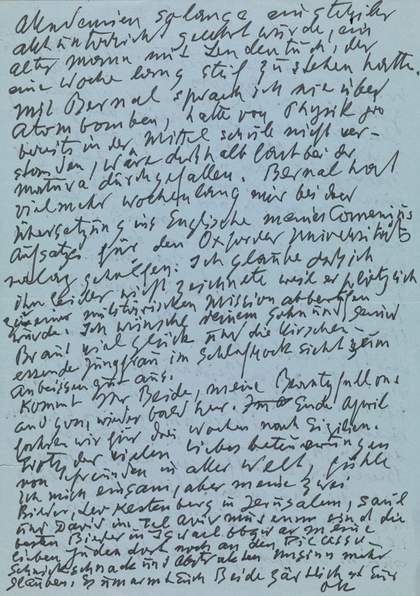 Akademien solange
aktunterricht gelehrt würde, ein
alter Mann mit Lendentuch, der
eine Woche lang steif zu stehen hatte.
Mit Bernal sprach ich nie über
Atombomben, hatte von Physik ja
bereits in der Mittelschule nicht ver-
standen, wäre deshalb fast bei der
matura durchgefallen. Bernal hat
vielmehr wochenlang mir bei der
Übersetzung ins Englische meines Comenius
Aufsatzes für den Oxforder Universitäts
verlag geholfen. Ich glaube dass ich
ihn leider nicht zeichnete weil er plötzlich
zu einer militärischen Mission abberufen
wurde. Ich wünsche deinem Sohn und seiner
Braut viel Glück und die Kirschen-
essende Jungfrau im Schlafrock sieht zum
Anbeissen gut aus.
Kommt Ihr Beide, meine Beautyfull ons
and you, wieder bald her. Ende April
fahren wir für drei Wochen nach Sizilien.
Trotz der vielen Liebesbeteuerungen
von Freunden in aller Welt, fühle
ich mich einsam, aber meine zwei
Bilder, der Kestenberg in Jerusalem, Saul
und David im Tel Aviv museum sind die
besten Bilder in Israel obgleich meine
lieben Juden dort noch an den Picasso
Schnickschnack und abstrakten Unsinn mehr
glauben. Es umarmt Euch Beide zärtlich Euer
OK